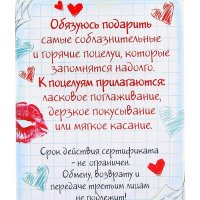 Обязуюсь подарить
самые соблазнительные
и горячие поцелуи, которые
запомнятся надолго.
К поцелуям прилагаются:
ласковое поглаживание,
дерзкое покусывание
или мягкое касание.
Срок действия сертификата
- не ограничен.
Обмену, возврату и
передаче третьим лицам
не подлежит!